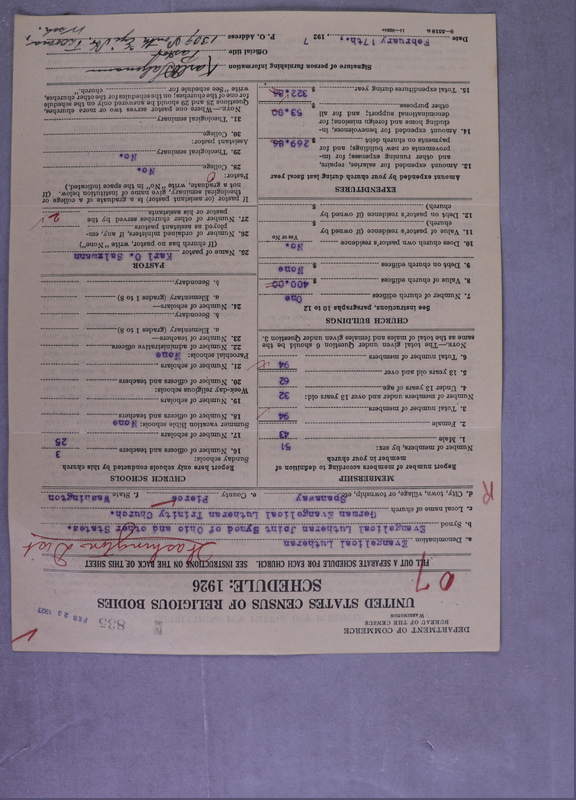 DEPARTMENT OF COMMERCE
BUREAU OF THE CENSUS
WASHINGTON
835
FEB 23 1927
UNITED STATES CENSUS OF RELIGIOUS BODIES
SCHEDULE: 1926
07
FILL OUT A SEPARATE SCHEDULE FOR EACH CHURCH. SEE INSTRUCTIONS ON THE BACK OF THIS SHEET
Washington Dist
a. Denomination Evangelical Lutheran
b. Synod Evangelical Lutheran Joint Synod of Ohio and other States.
c. Local name of church German Evangelical Lutheran Trinity Church.
d. City, town, village, or township, etc. Spanaway e. County Pierce f. State Washington
R
MEMBERSHIP
Report number of members according to definition of
member in your church
Number of members, by sex:
1. Male 51
2. Female 43
3. Total number of members 94
Number of members under and over 13 years old:
4. Under 13 years of age 32
5. 13 years old and over 62
6. Total number of members 94
NOTE.—The total given under Question 6 should be the
same as the total of males and females given under Question 3.
CHURCH BUILDINGS
See instructions, paragraphs 10 to 12
7. Number of church edifices One
8. Value of church edifices $ 400.00
9. Debt on church edifices $ None
10. Does church own pastor's residence No.
Yes or No
11. Value of pastor's residence (if owned by
church) $
12. Debt on pastor's residence (if owned by
church) $
EXPENDITURES
Amount expended by your church during last fiscal year
13. Amount expended for salaries, repairs,
and other running expenses; for im-
provements or new buildings; and for
payments on church debt $ 269.86
14. Amount expended for benevolence, in-
cluding home and foreign missions; for
denominational support; and for all
other purposes $ 53.00
15. Total expenditures during year $ 322.86
CHURCH SCHOOLS
Report here only schools conducted by this church
Sunday schools:
16. Number of officers and teachers 3
17. Number of scholars 25
Summer vacation Bible schools: None
18. Number of officers and teachers
19. Number of scholars
Week-day religious schools:
20. Number of officers and teachers
21. Number of scholars
Parochial schools: None
22. Number of administrative officers
23. Number of teachers—
a. Elementary (grades 1 to 8)
b. Secondary
24. Number of scholars—
a. Elementary (grades 1 to 8)
b. Secondary
PASTOR
25. Name of pastor Karl O. Salzmann
(If church has no pastor, write "None")
26. Number of ordained ministers, if any, em-
ployed as assistant pastors
27. Number of other churches served by the
pastor or his assistants 2
If pastor (or assistant pastor) is a graduate of a college or
theological seminary, give name of institution below. (If
not a graduate, write "No" in the space indicated.)
Pastor: 0
28. College No.
29. Theological seminary No.
Assistant pastor:
30. College
31. Theological seminary
NOTE.—Where one pastor serves two or more churches,
Questions 28 and 29 should be answered only on the schedule
for one of the churches; on the schedules for the other churches,
write "See schedule for church."
Signature of person furnishing information Karl O. Salzmann
Official title Pastor
Date February 17th., 1927 P. O. Address 1309 South Eye Str. Tacoma,
Wash.
8—5318a